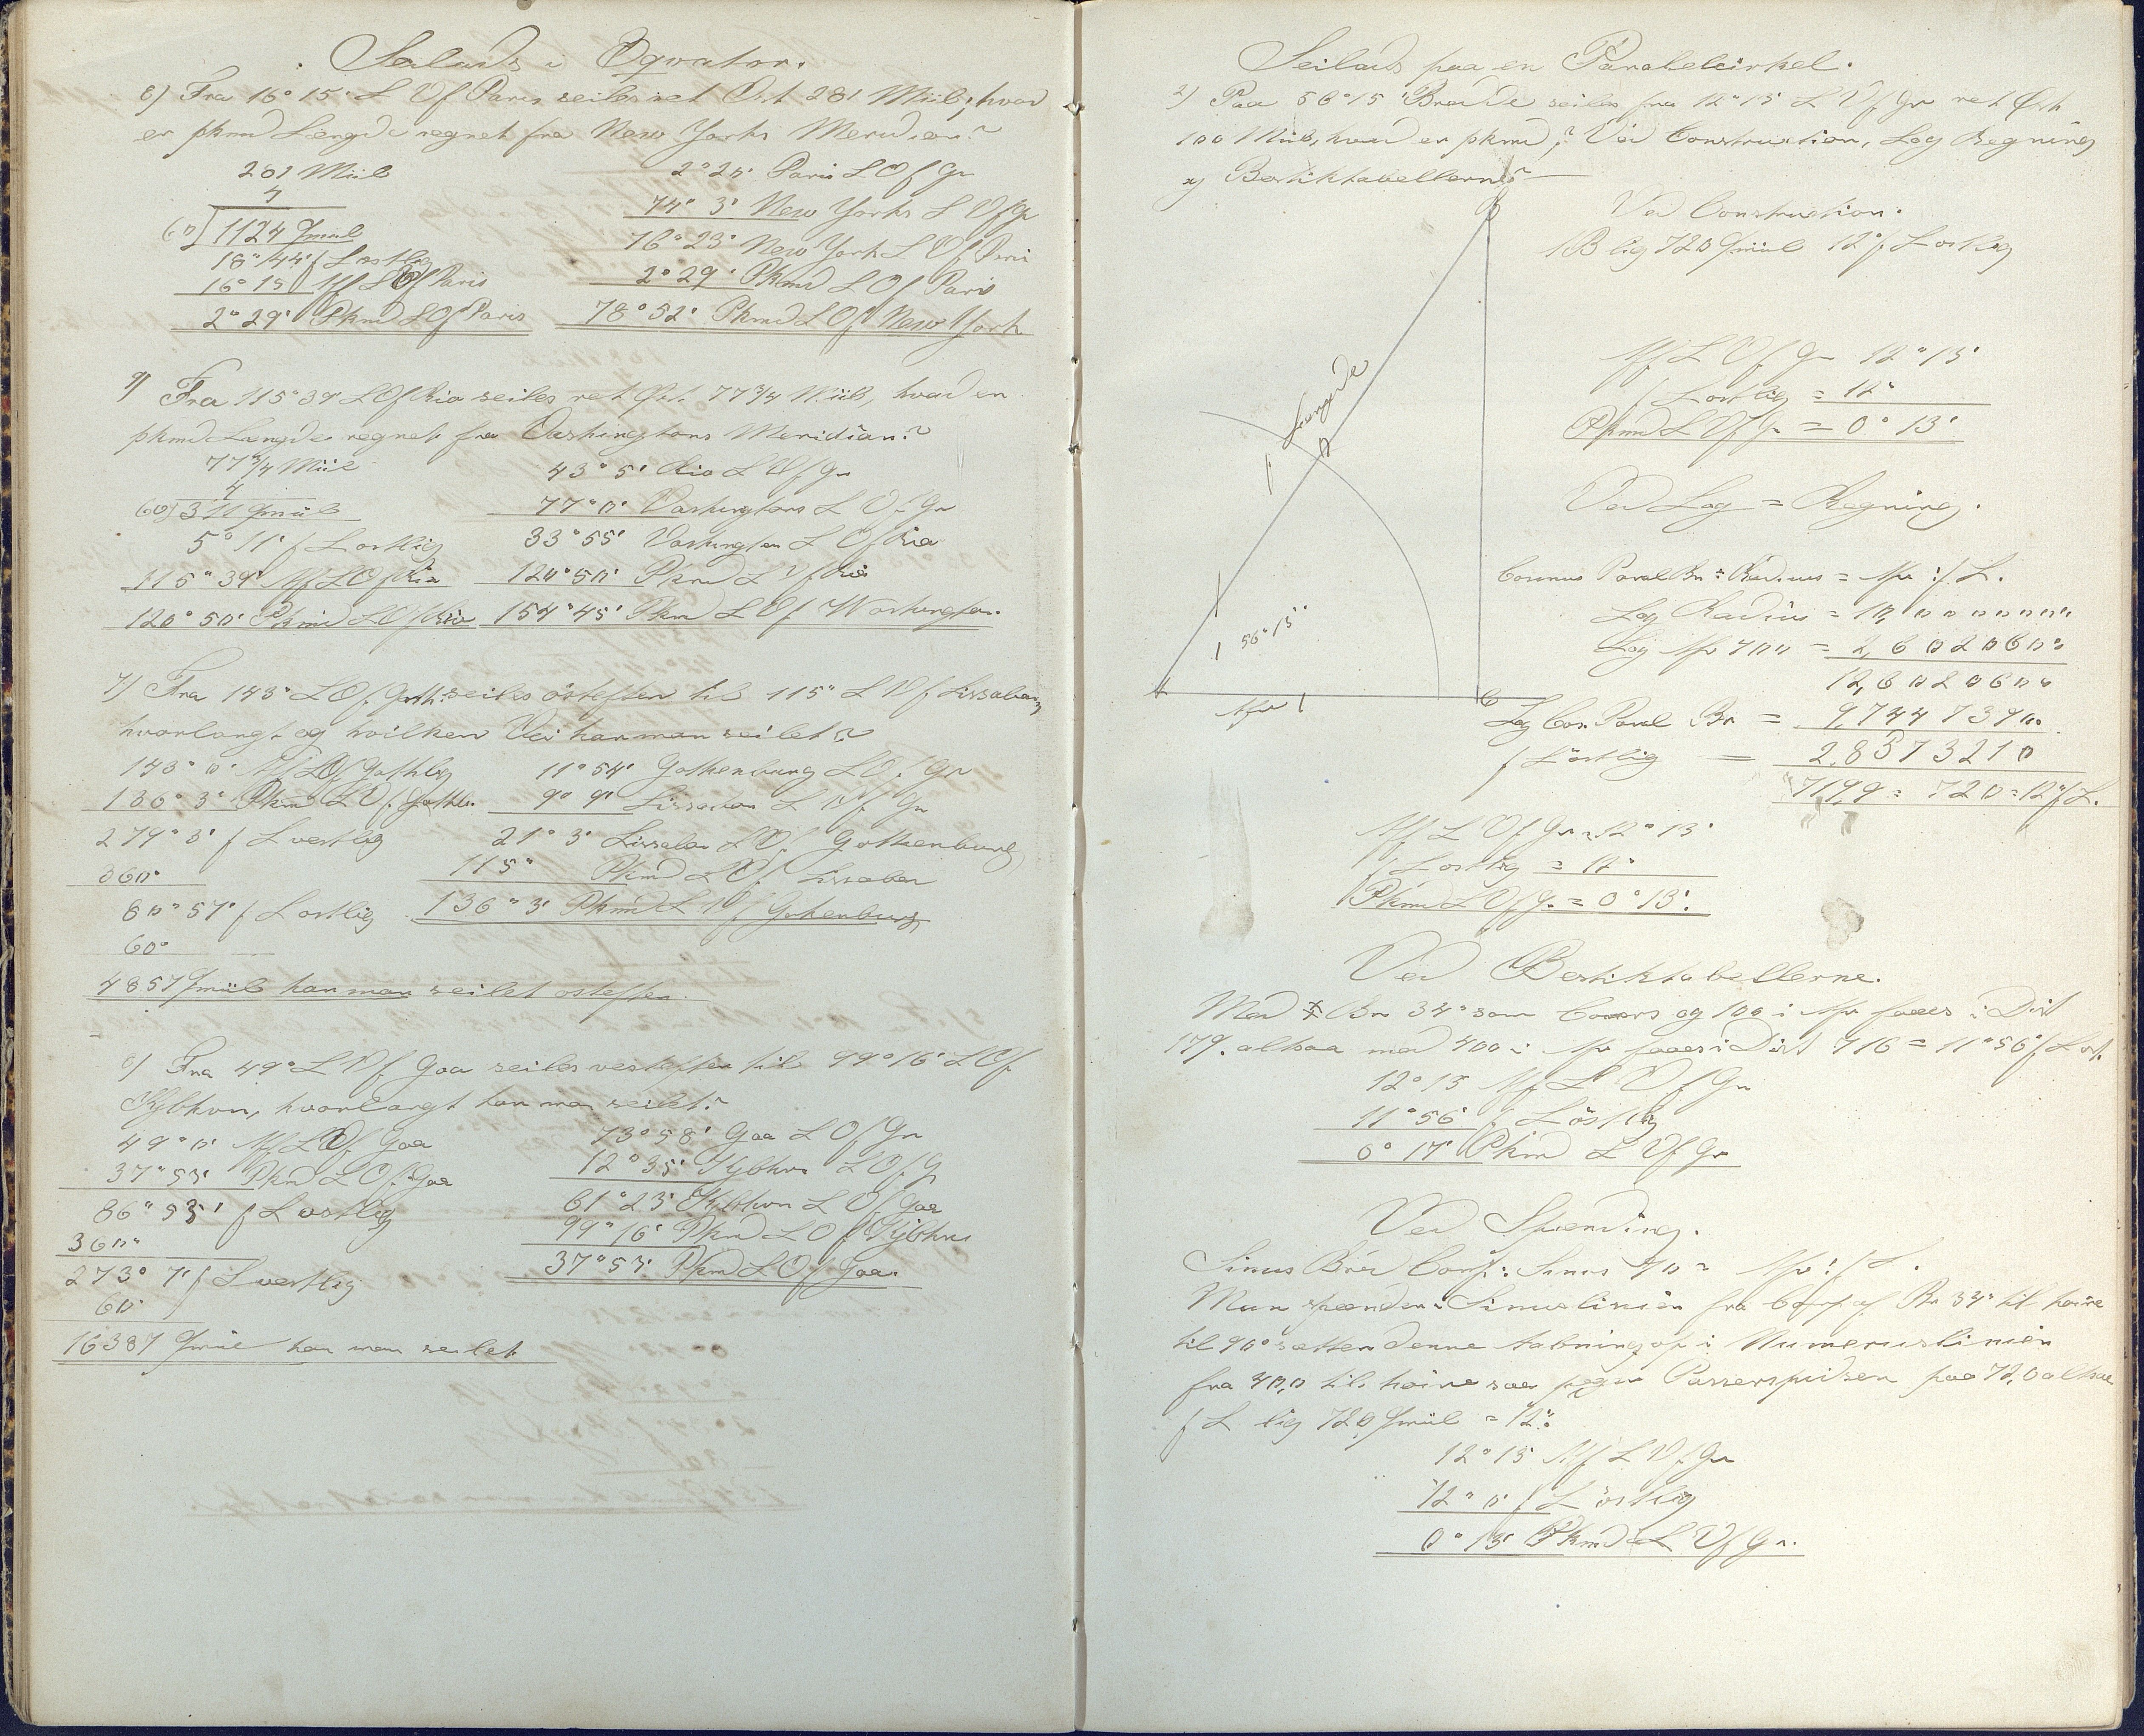 Seilads i Eqvator.
8) Fra 16° 15' L V f Paris seiles ret Ost 281 Miil, hvad
er pkmd Længde regnet fra New Yorks Meridian?
281 Miil
4
60) 1124 Qmiil
18° 44' f L ostlig
16° 15' Aff L V f Paris
2° 29' Pkmd L O f Paris
2° 20' Paris L O f Gr
74° 3' New Yorks L V f Gr
76° 23' New York L V f Paris
2° 29' Pkmd L O f Paris
78° 52' Pkmd L O f New York
9) Fra 115° 39' L O f Rio seiles ret Øst 77 3/4 Miil, hvad er
pkmd Længde regnet fra Washingtons Meridian?
77 3/4 Miil
4
60) 311 Qmiil
5° 11' f L ostlig
115° 39' Aff L O f Rio
120° 50' Pkmd L O f Rio
43° 5' Rio L V f Gr
77° 0' Washingtons L V f Gr
33° 55' Washington L V f Rio
120° 50' Pkmd L O f Rio
154° 45' Pkmd L O f Washington.
7) Fra 143° L O f Gothb seiles østefter til 115° L V f Lissabon,
hvorlangt og hvilken Vei har man seilet?
143° 0' Aff L O f Gothbg
136° 3' Pkmd L V f Gothb.
279° 3' f L vestlig
360°
80° 57' f L ostlig
60
4857 Qmiil har man seilet ostefter.
11° 54' Gothenburg L O f Gr
9° 9' Lissabon L V f Gr
21° 3' Lissabon L V f Gothenburg
115° Pkmd L V f Lissabon
136° 3' Pkmd L V f Gothenburg
6) Fra 49° L V f Goa seiles vestefter til 99° 16' L O f
Kjbhvn, hvorlangt har man seilet?
49° 0' Aff L V f Goa
37° 53' Pkmd L O f Goa
86° 53' f L ostlig
360°
273° 7' f L vestlig
60
16387 Qmiil har man seilet
73° 58' Goa L O f Gr
12° 35' Kjbhvn L O f G
61° 23' Kjbhvn L V f Goa
99° 16' Pkmd L O f Kjbhvn
37° 53' Pkmd L O f Goa.
Seilads paa en Paralelcirkel.
2) Paa 56° 15' Brede seiles fra 12° 13' L V f Gr ret Øst
100 Miil, hvad er pkmd? Ved Construction, Log Regning
og Bestiktabellerne?
Ved Construction.
B lig 720 Qmiil 12° f L ostlig
B
f. Længde
D
56° 15'
Afv
C
Aff L V f Gr 12° 13'
f L ostlig = 12°
Pkmd L V f Gr = 0° 13'
Ved Log = Regning.
Cosinus Paral Br : Radius = Afv : f L.
Log Radius = 10,0000000
Log Afv 400 = 2,6020600
12,6020600
Log Cos. Paral Br = 9,7447390
f L östlig = 2,8573210
719,9 = 720 = 12° f L.
Aff L V f Gr = 12° 13'
f L ostlig = 12°
Pkmd L V f Gr = 0° 13'.
Ved Bestiktabellerne.
Med Br 34° som Cours og 100 i Afv faaes i Dist
179. altsaa med 400 i Afv faaes i Dist 716 = 11° 56' f L ost.
12° 13' Aff L V f Gr
11° 56' f L östlig
0° 17' Pkmd L V f Gr
Ved Spænding.
Sinus Brd Comp. : Sinus 90 = Afv : f L.
Man spænder i Sinuslinien fra Comp af Br 34° til høire
til 90° sætter denne Aabning op i Numeruslinien
fra 40,0 til høire saa peger Passerspidsen paa 72,0 altsaa
f L lig 720 Qmiil = 12°.
12° 13' Aff L V f Gr
12° 0' f L östlig
0° 13' Pkmd L V f Gr.